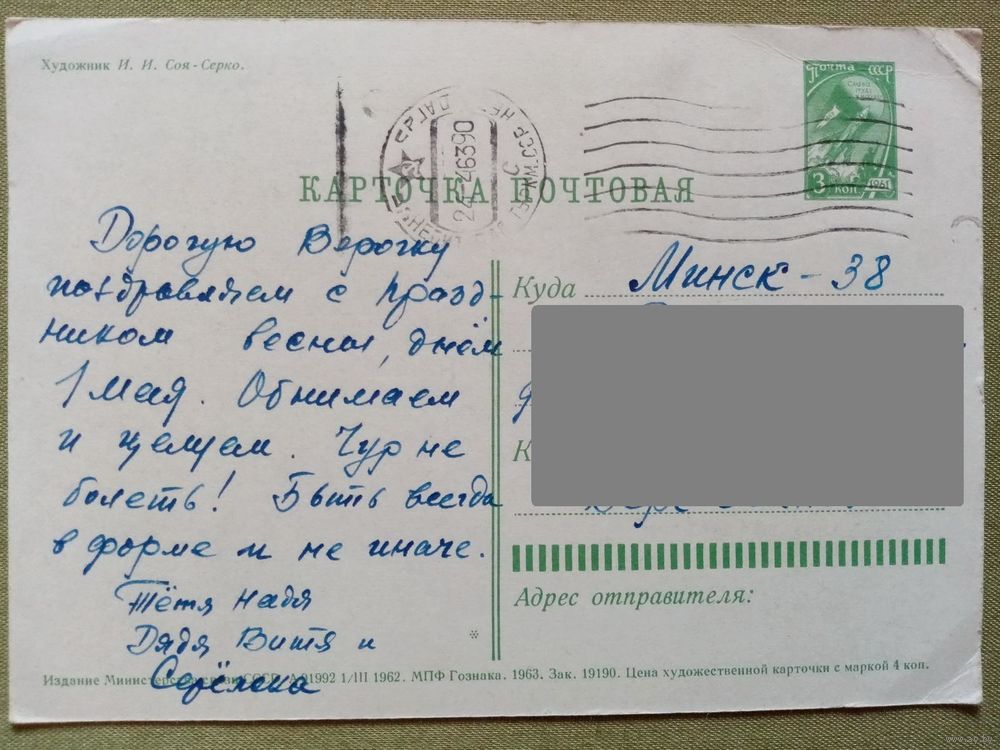 Художник И. И. Соя-Серко.
Почта СССР
3 коп 1961
КАРТОЧКА ПОЧТОВАЯ
Дорогую Верочку
поздравляем с празд-
ником весны, днём
1 мая. Обнимаем
и целуем. Чур не
болеть! Быть всегда
в форме и не иначе.
Тётя Надя
Дядя Витя и
Серёжка
Куда Минск-38
Адрес отправителя:
*
Издание Министерства связи СССР. А 01992 1/III 1962. МПФ Гознака. 1963. Зак. 19190. Цена художественной карточки с маркой 4 коп.
www.ay.by